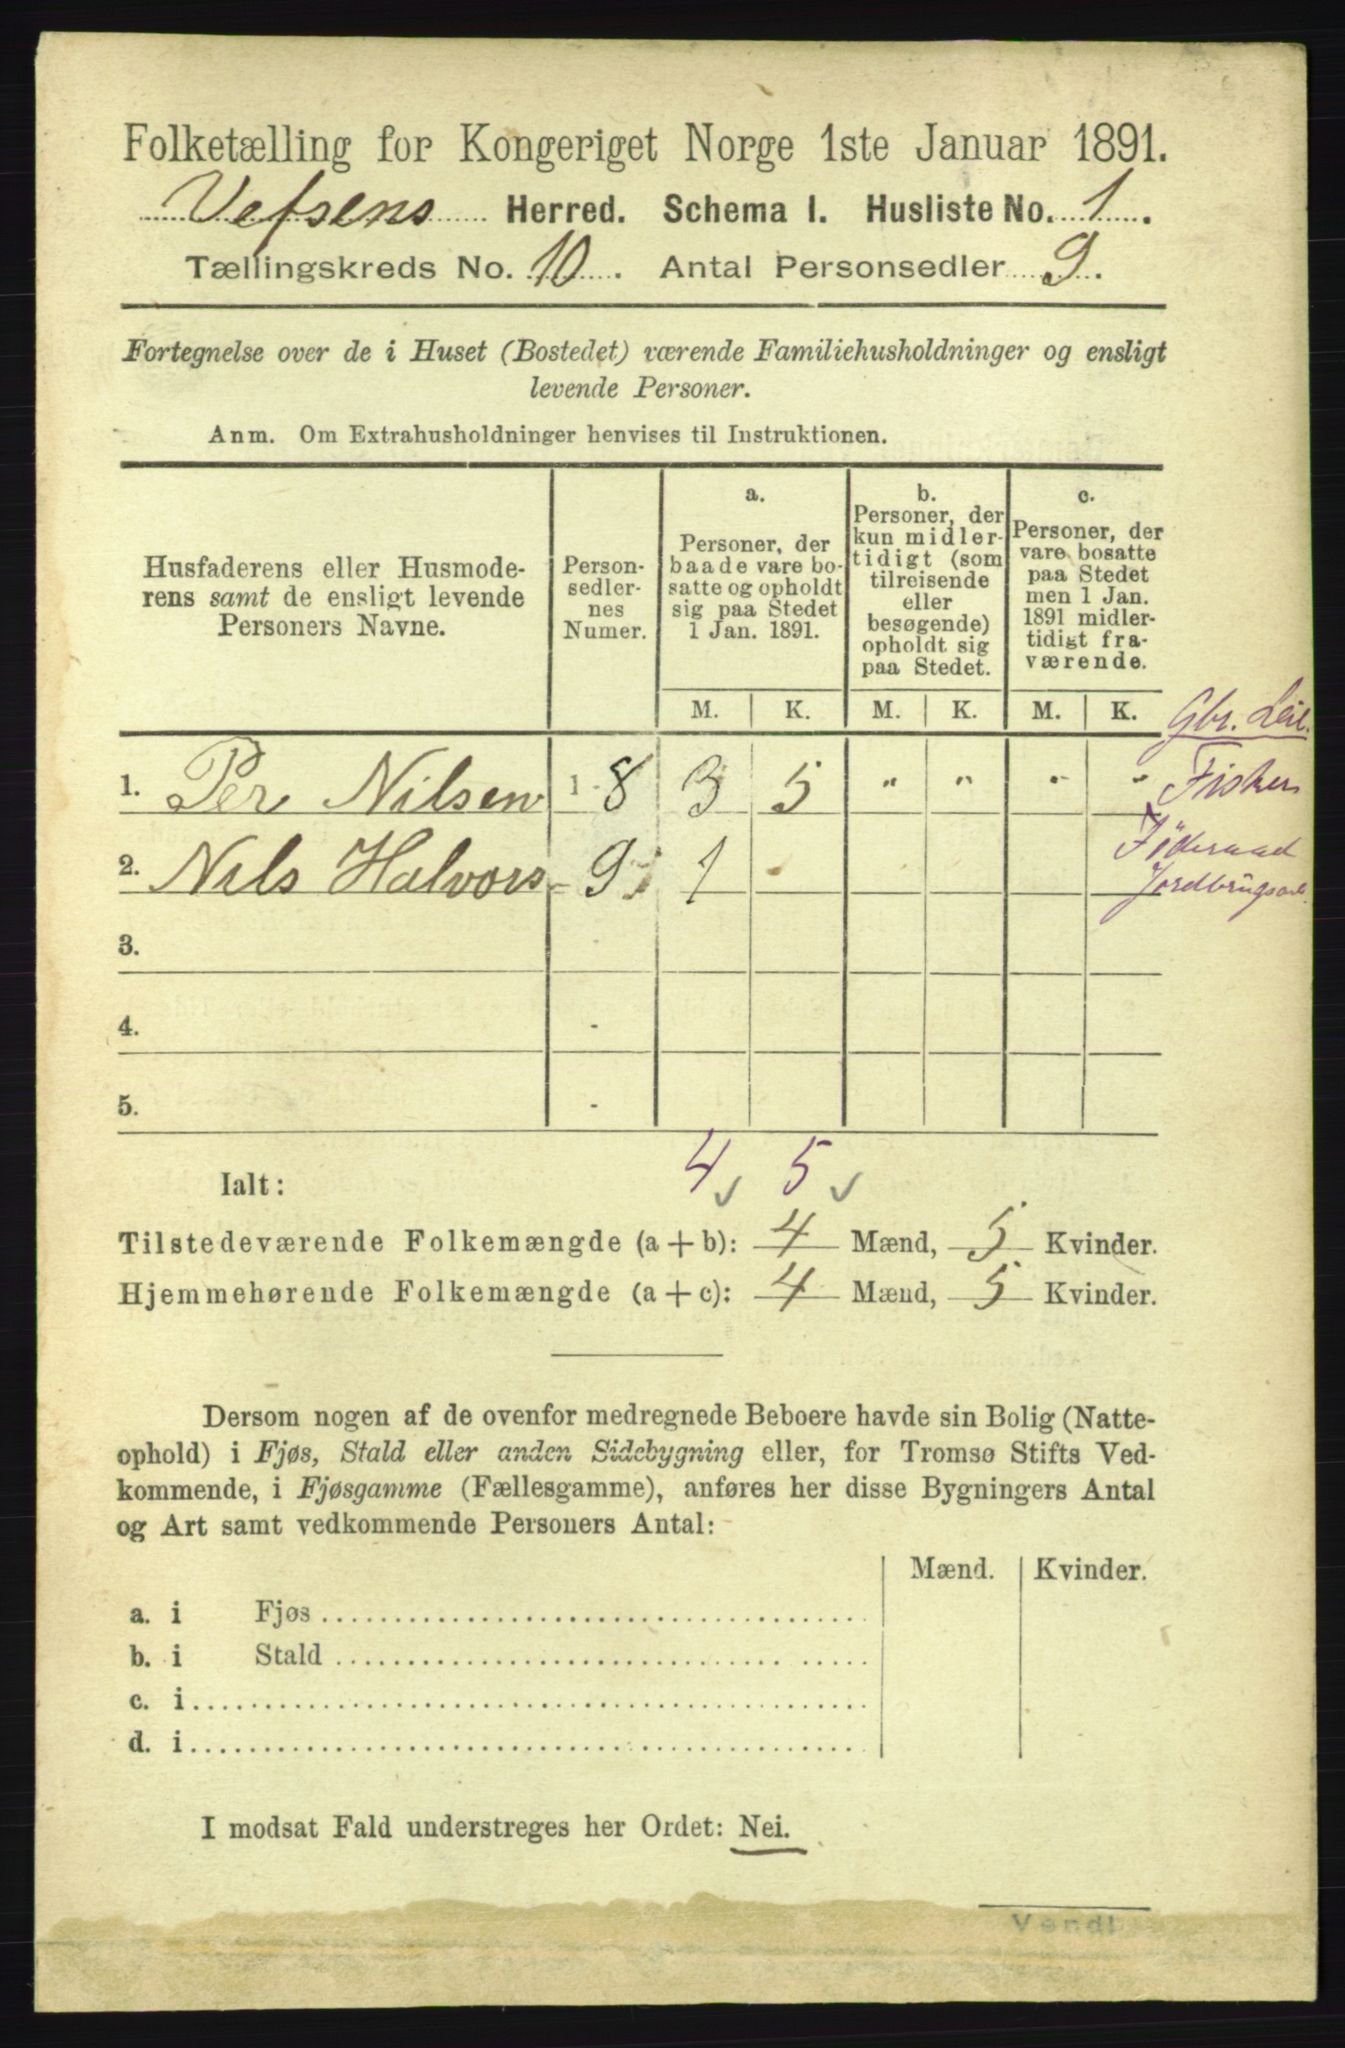 Folketælling for Kongeriget Norge 1ste Januar 1891.
Vefsens Herred. Schema I. Husliste No. 1.
Tællingskreds No. 10. Antal Personsedler 9.
Fortegnelse over de i Huset (Bostedet) værende Familiehusholdninger og ensligt
levende Personer.
Anm. Om Extrahusholdninger henvises til Instruktionen.
Husfaderens eller Husmode-
rens samt de ensligt levende
Personers Navne.
Person-
sedler-
nes
Numer.
a.
Personer, der
baade vare bo-
satte og opholdt
sig paa Stedet
1 Jan. 1891.
b.
Personer, der
kun midler-
tidigt (som
tilreisende
eller
besøgende)
opholdt sig
paa Stedet.
c.
Personer, der
vare bosatte
paa Stedet
men 1 Jan.
1891 midler-
tidigt fra-
værende.
M. K. M. K. M. K.
Gbr. Leil.
1. Per Nilsen 1 - 8 3 5 " " " " Fisker
2. Nils Halvors - 9 1 - Föderaad
Jordbrugsarb.
3. -
4. -
5. -
Ialt: 4 5
Tilstedeværende Folkemængde (a + b): 4 Mænd, 5 Kvinder.
Hjemmehørende Folkemængde (a + c): 4 Mænd, 5 Kvinder.
Dersom nogen af de ovenfor medregnede Beboere havde sin Bolig (Natte-
ophold) i Fjøs, Stald eller anden Sidebygning eller, for Tromsø Stifts Ved-
kommende, i Fjøsgamme (Fællesgamme), anføres her disse Bygningers Antal
og Art samt vedkommende Personers Antal:
Mænd. Kvinder.
a. i Fjøs
b. i Stald
c. i
d. i
I modsat Fald understreges her Ordet: Nei.
Vend!